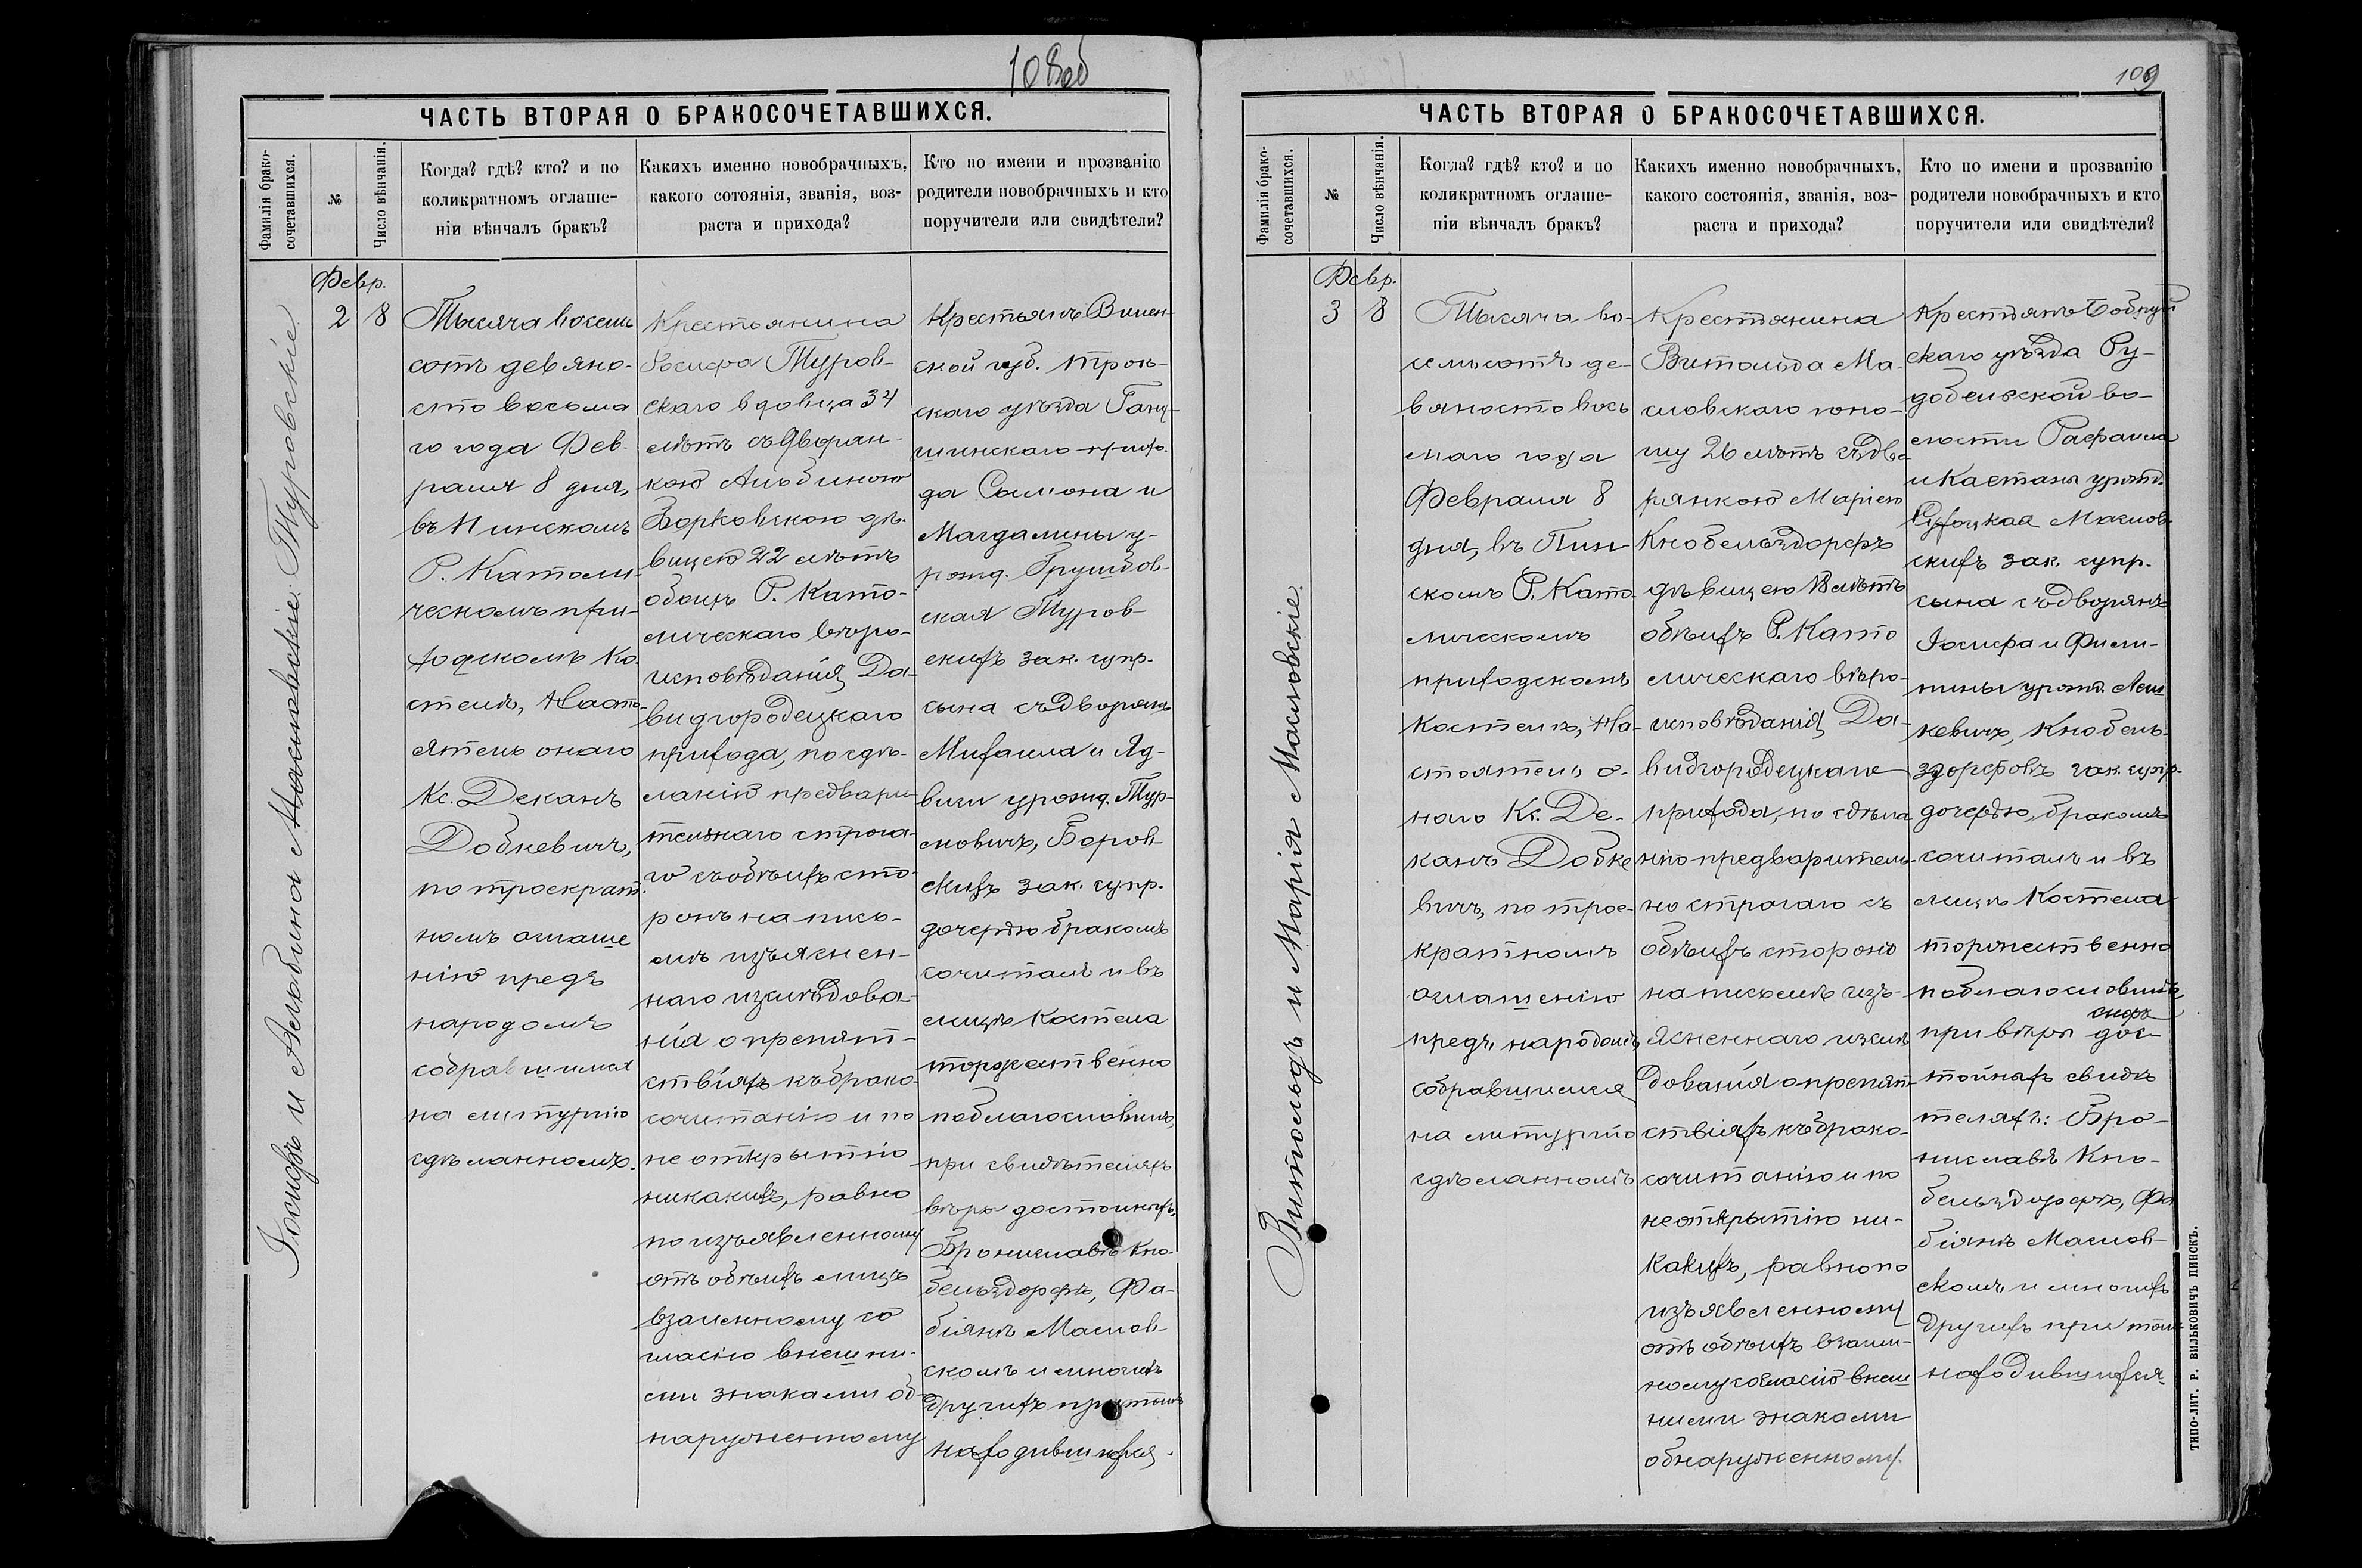 108об
ЧАСТЬ ВТОРАЯ О БРАКОСОЧЕТАВШИХСЯ.
Фамилія брако-
сочетавшихся.
№
Число вѣнчанія.
Когда? гдѣ? кто? и по
коликратномъ оглаше-
ніи вѣнчалъ бракъ?
Какихъ именно новобрачныхъ,
какого сотоянія, званія, воз-
раста и прихода?
Кто по имени и прозванію
родители новобрачныхъ и кто
поручители или свидѣтели?
Іосифъ и Альбина Масловскіе. Туровскіе.
Февр.
2
8
Тысяча восемь
сотъ девяно-
сто восьма
го года Фев-
раля 8 дня,
въ Пинскомъ
Р. Католи-
ческомъ при-
ходскомъ Ко-
стелѣ, Насто-
ятель онаго
Кс. Деканъ
Добкевичъ,
по троекрат-
номъ оглаше
нію предъ
народомъ
собравшимся
на литургію
сдѣланномъ.
Крестьянина
Іосифа Туров-
скаго вдовца 34
лѣтъ съ Дворян-
кою Альбиною
Борковскою дѣ-
вицею 22 лѣтъ
обоихъ Р. Като-
лическаго вѣро-
исповѣданія, Да-
видгородецкаго
прихода, по сдѣ-
ланію предвари-
тельнаго строга-
го съ обѣихъ сто-
ронъ на пись-
мѣ изъяснен-
наго изслѣдова-
нія о препят-
ствіяхъ къ брако-
сочитанію и по
не открытію
никакихъ, равно
по изъявленному
отъ обѣихъ лицъ
взаимному со
гласію внешни-
ми знаками об-
наруженному
Крестьянъ Вилен-
ской губ. Трок-
скаго уѣзда Гану-
шинскаго прихо-
да Симона и
Магдалины у-
рожд. Грушов-
ская Туров-
скихъ зак. супр.
сына съ дворянъ
Михаила и Яд-
виги урожд. Тур-
новичъ, Борков-
скихъ зак. супр.
дочерью бракомъ
сочиталъ и въ
лицѣ Костела
торжественно
поблагословилъ,
при свидѣтеляхъ
вѣры достойныхъ,
Брониславѣ Кно-
бельздорфъ, Фа-
біянѣ Маслов-
скомъ и многихъ
другихъ при томъ
находившихся.
109
ЧАСТЬ ВТОРАЯ О БРАКОСОЧЕТАВШИХСЯ.
Фамилія брако-
сочетавшихся.
№
Число вѣнчанія.
Когда? гдѣ? кто? и по
коликратномъ оглаше-
ніи вѣнчалъ бракъ?
Какихъ именно новобрачныхъ,
какого состоянія, званія, воз-
раста и прихода?
Кто по имени и прозванію
родители новобрачныхъ и кто
поручители или свидѣтели?
Витольдъ и Марія Масловскіе.
Февр.
3
8
Тысяча во-
семьсотъ де-
вяносто вось
маго года
Февраля 8
дня, въ Пин
скомъ Р. Като-
лическомъ
приходскомъ
Костелѣ, На-
стоятель о-
наго Кс. Де-
канъ Добке
вичъ, по трое-
кратномъ
оглашенію
предъ народомъ,
собравшимся
на литургію
сдѣланномъ
Крестянина
Витольда Ма-
словскаго юно-
шу 26 лѣтъ съ дво-
рянкою Маріею
Кнобельздорфъ
дѣвицею 18 лѣтъ
обѣихъ Р. Като
лическаго вѣро-
исповѣданія, Да-
видгородецкаго
прихода, по сдѣла
нію предваритель-
но строгаго съ
обѣихъ сторонъ
на письмѣ изъ-
ясненнаго изслѣ
дованія о препят-
ствіяхъ къ брако-
сочитанію и по
не открытію ни-
какихъ, равно по
изъявленному
отъ обѣихъ взаим-
ному согласію внеш
ними знаками
обнаруженному.
Крестянъ Бобруй
скаго уѣзда Ру-
добельской во-
лости Рафаила
и Каетаны урожд.
Масловс-
скихъ зак. супр.
сына съ дворянъ
Іосифа и Фили-
пины урожд. Леш
кевичъ, Кнобель-
здорфовъ зак. супр.
дочерью, бракомъ
сочиталъ и въ
лицѣ Костела
торжественно
поблагословилъ
при вѣры дос-
тойныхъ свидѣ
теляхъ: Бро-
ниславѣ Кно-
бельздорфъ, Фа
біянѣ Маслов-
скомъ и многихъ
другихъ при томъ
находившихся.
ТИПО-ЛИТ. Р. ВИЛЬКОВИЧЪ ПИНСКЪ.